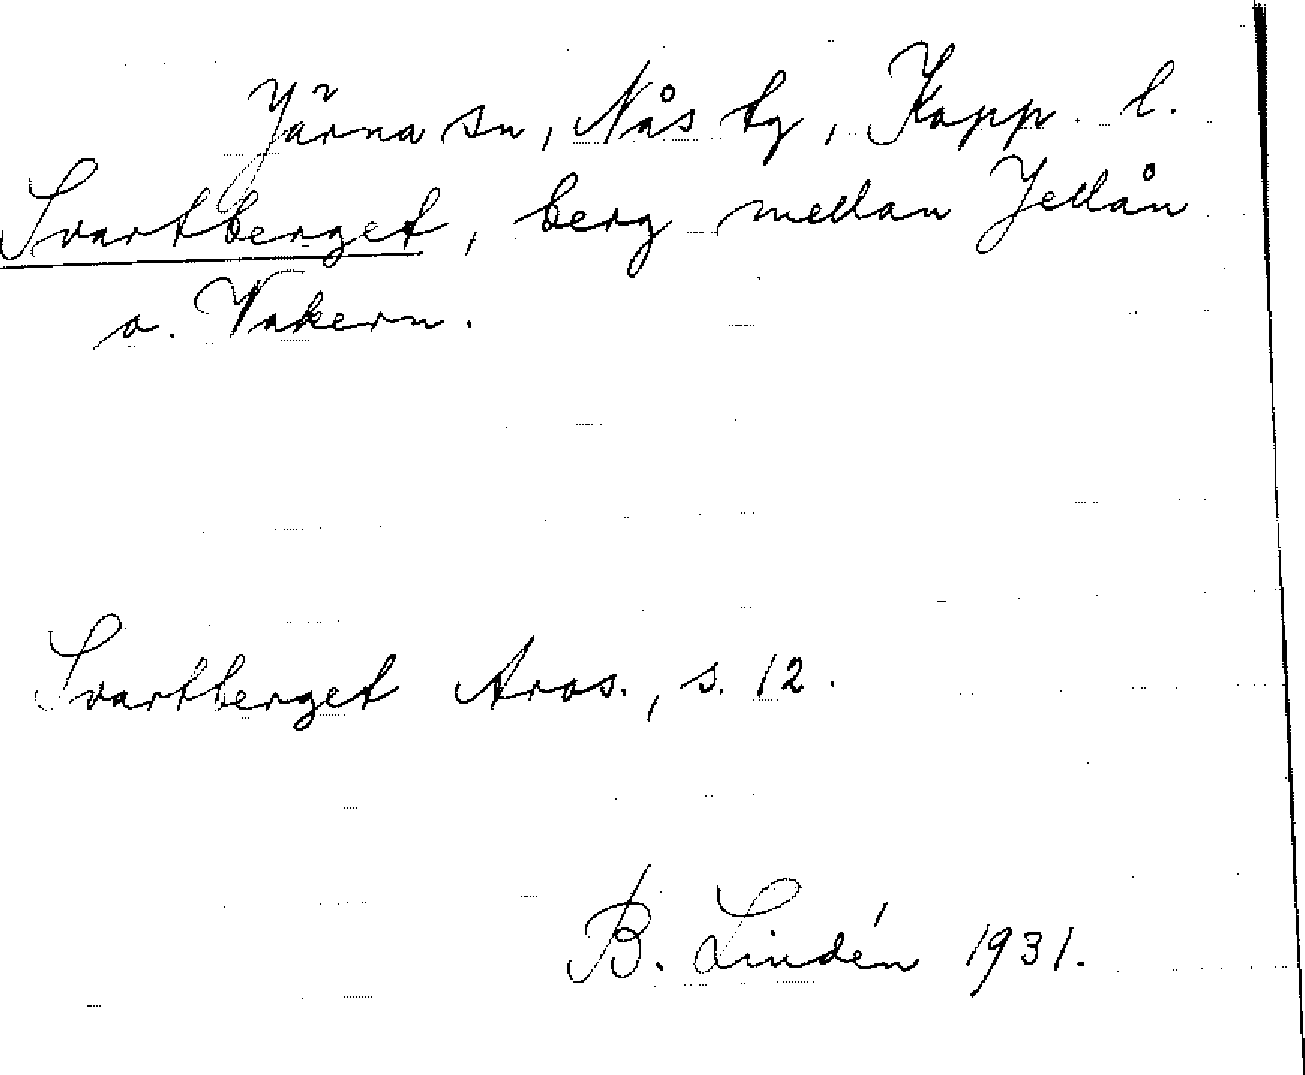 Järna sn, Nås tg, Kopp. l.
Svartberget, berg mellan Jellån
o. Vakern.
Svartberget Aros., s. 12.
B. Lindén 1931.